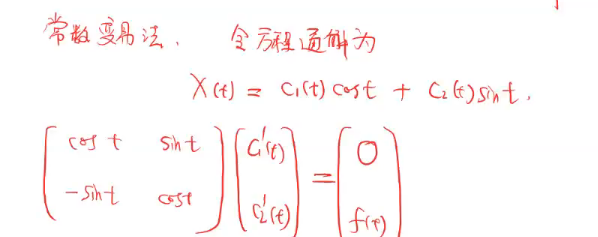 常数变易法. 令方程通解为
X(t) = C₁(t) cos t + C₂(t) sin t.
( cos t sin t ; -sin t cos t ) ( C₁'(t) ; C₂'(t) ) = ( 0 ; f(t) )